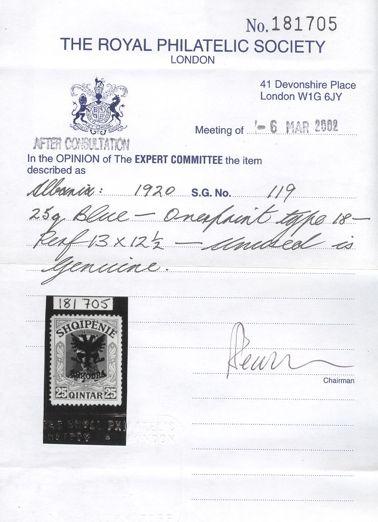 No. 181705
THE ROYAL PHILATELIC SOCIETY
LONDON
41 Devonshire Place
London W1G 6JY
AFTER CONSULTATION
Meeting of - 6 MAR 2002
In the OPINION of The EXPERT COMMITTEE the item
described as
Albania: 1920 S.G. No. 119
25q Blue - Overprint type 18 -
Perf 13 x 12½ - unused is
genuine.
181 705
SHQIPENIE
25 QINTAR 25
Chairman
THE ROYAL PHILATELIC
LONDON